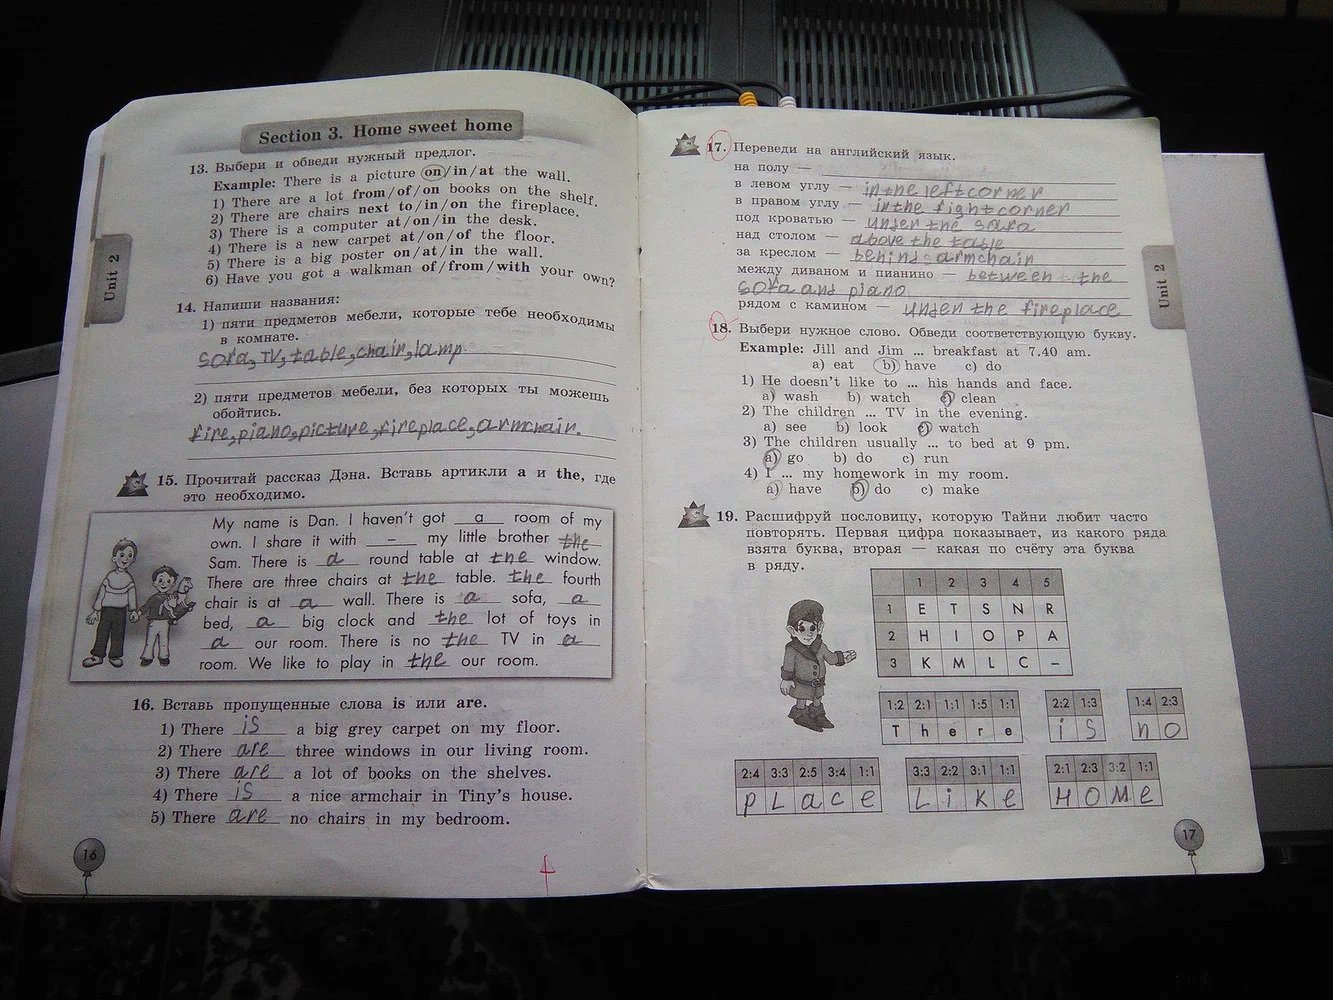 Section 3. Home sweet home
13. Выбери и обведи нужный предлог.
Example: There is a picture on/in/at the wall.
1) There are a lot from/of/on books on the shelf.
2) There are chairs next to/in/on the fireplace.
3) There is a computer at/on/in the desk.
4) There is a new carpet at/on/of the floor.
5) There is a big poster on/at/in the wall.
6) Have you got a walkman of/from/with your own?
Unit 2
14. Напиши названия:
1) пяти предметов мебели, которые тебе необходимы
в комнате.
sofa, TV, table, chair, lamp.
2) пяти предметов мебели, без которых ты можешь
обойтись.
fire, piano, picture, fireplace, armchair.
15. Прочитай рассказ Дэна. Вставь артикли a и the, где
это необходимо.
My name is Dan. I haven't got a room of my
own. I share it with – my little brother the
Sam. There is a round table at the window.
There are three chairs at the table. the fourth
chair is at a wall. There is a sofa, a
bed, a big clock and the lot of toys in
a our room. There is no the TV in a
room. We like to play in the our room.
16. Вставь пропущенные слова is или are.
1) There is a big grey carpet on my floor.
2) There are three windows in our living room.
3) There are a lot of books on the shelves.
4) There is a nice armchair in Tiny's house.
5) There are no chairs in my bedroom.
16
17. Переведи на английский язык.
на полу —
в левом углу — in the left corner
в правом углу — in the right corner
под кроватью — under the sofa
над столом — above the table
за креслом — behind armchair
между диваном и пианино — between the
sofa and piano
рядом с камином — under the fireplace
Unit 2
18. Выбери нужное слово. Обведи соответствующую букву.
Example: Jill and Jim ... breakfast at 7.40 am.
a) eat b) have c) do
1) He doesn't like to ... his hands and face.
a) wash b) watch c) clean
2) The children ... TV in the evening.
a) see b) look c) watch
3) The children usually ... to bed at 9 pm.
a) go b) do c) run
4) I ... my homework in my room.
a) have b) do c) make
19. Расшифруй пословицу, которую Тайни любит часто
повторять. Первая цифра показывает, из какого ряда
взята буква, вторая — какая по счёту эта буква
в ряду.
1 2 3 4 5
1 E T S N R
2 H I O P A
3 K M L C –
1:2 2:1 1:1 1:5 1:1 2:2 1:3 1:4 2:3
T h e r e i s n o
2:4 3:3 2:5 3:4 1:1 3:3 2:2 3:1 1:1 2:1 2:3 3:2 1:1
p L a c e L i K e H O M e
17